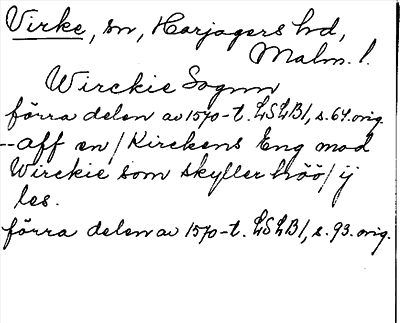 Virke, sn, Harjagers hd,
Malm. l.
Wirckie Sognn
förra delen av 1570-t. LSLB1, s. 64 orig.
--aff en / Kirckens Eng mod
Wirckie som skyller höö / ij
les.
förra delen av 1570-t. LSLB1, s. 93. orig.